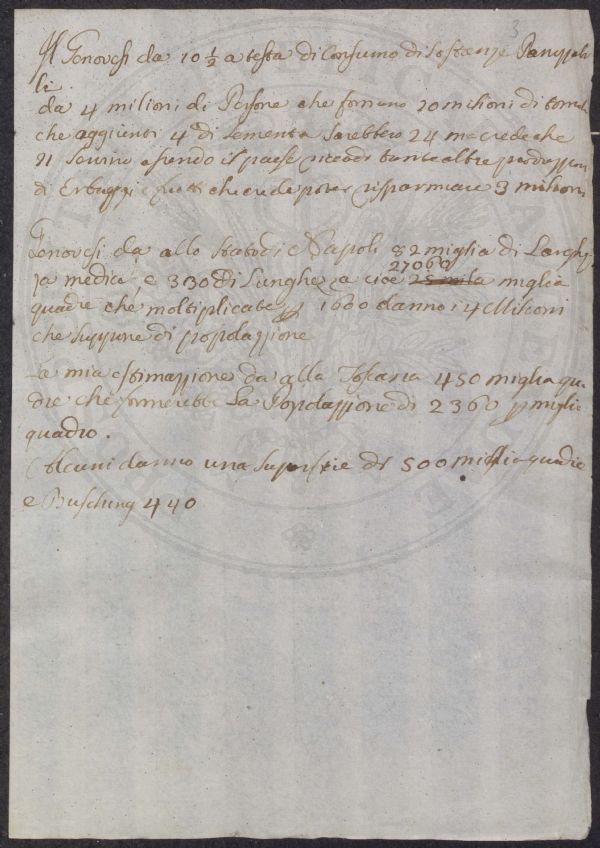 3
Il Genovesi da 10 ½ a testa di Consumo di Sostanze Panizzabi
li.
da 4 milioni di Persone che formano 20 milioni di tomoli
che aggiunti 4 di Sementa Sarebbero 24 ma crede che
il Sovrino essendo il paese di tante altre produzzioni
di Erbaggi e frutti che crede poter risparmiare 3 milioni
Genovesi da allo Stato di Napoli 82 miglia di Larghez
27060
za media e 330 di Lunghezza cioè 25 mila miglia
quadre che moltiplicate p 1600 danno i 4 Milioni
che suppone di popolazzione
La mia estimazzione da alla Toscana 450 miglia qua
dre che formerebbe La Popolazzione di 2360 p miglio
quadro.
Alcuni danno una Superficie di 500 miglia quadre
e Busching 440